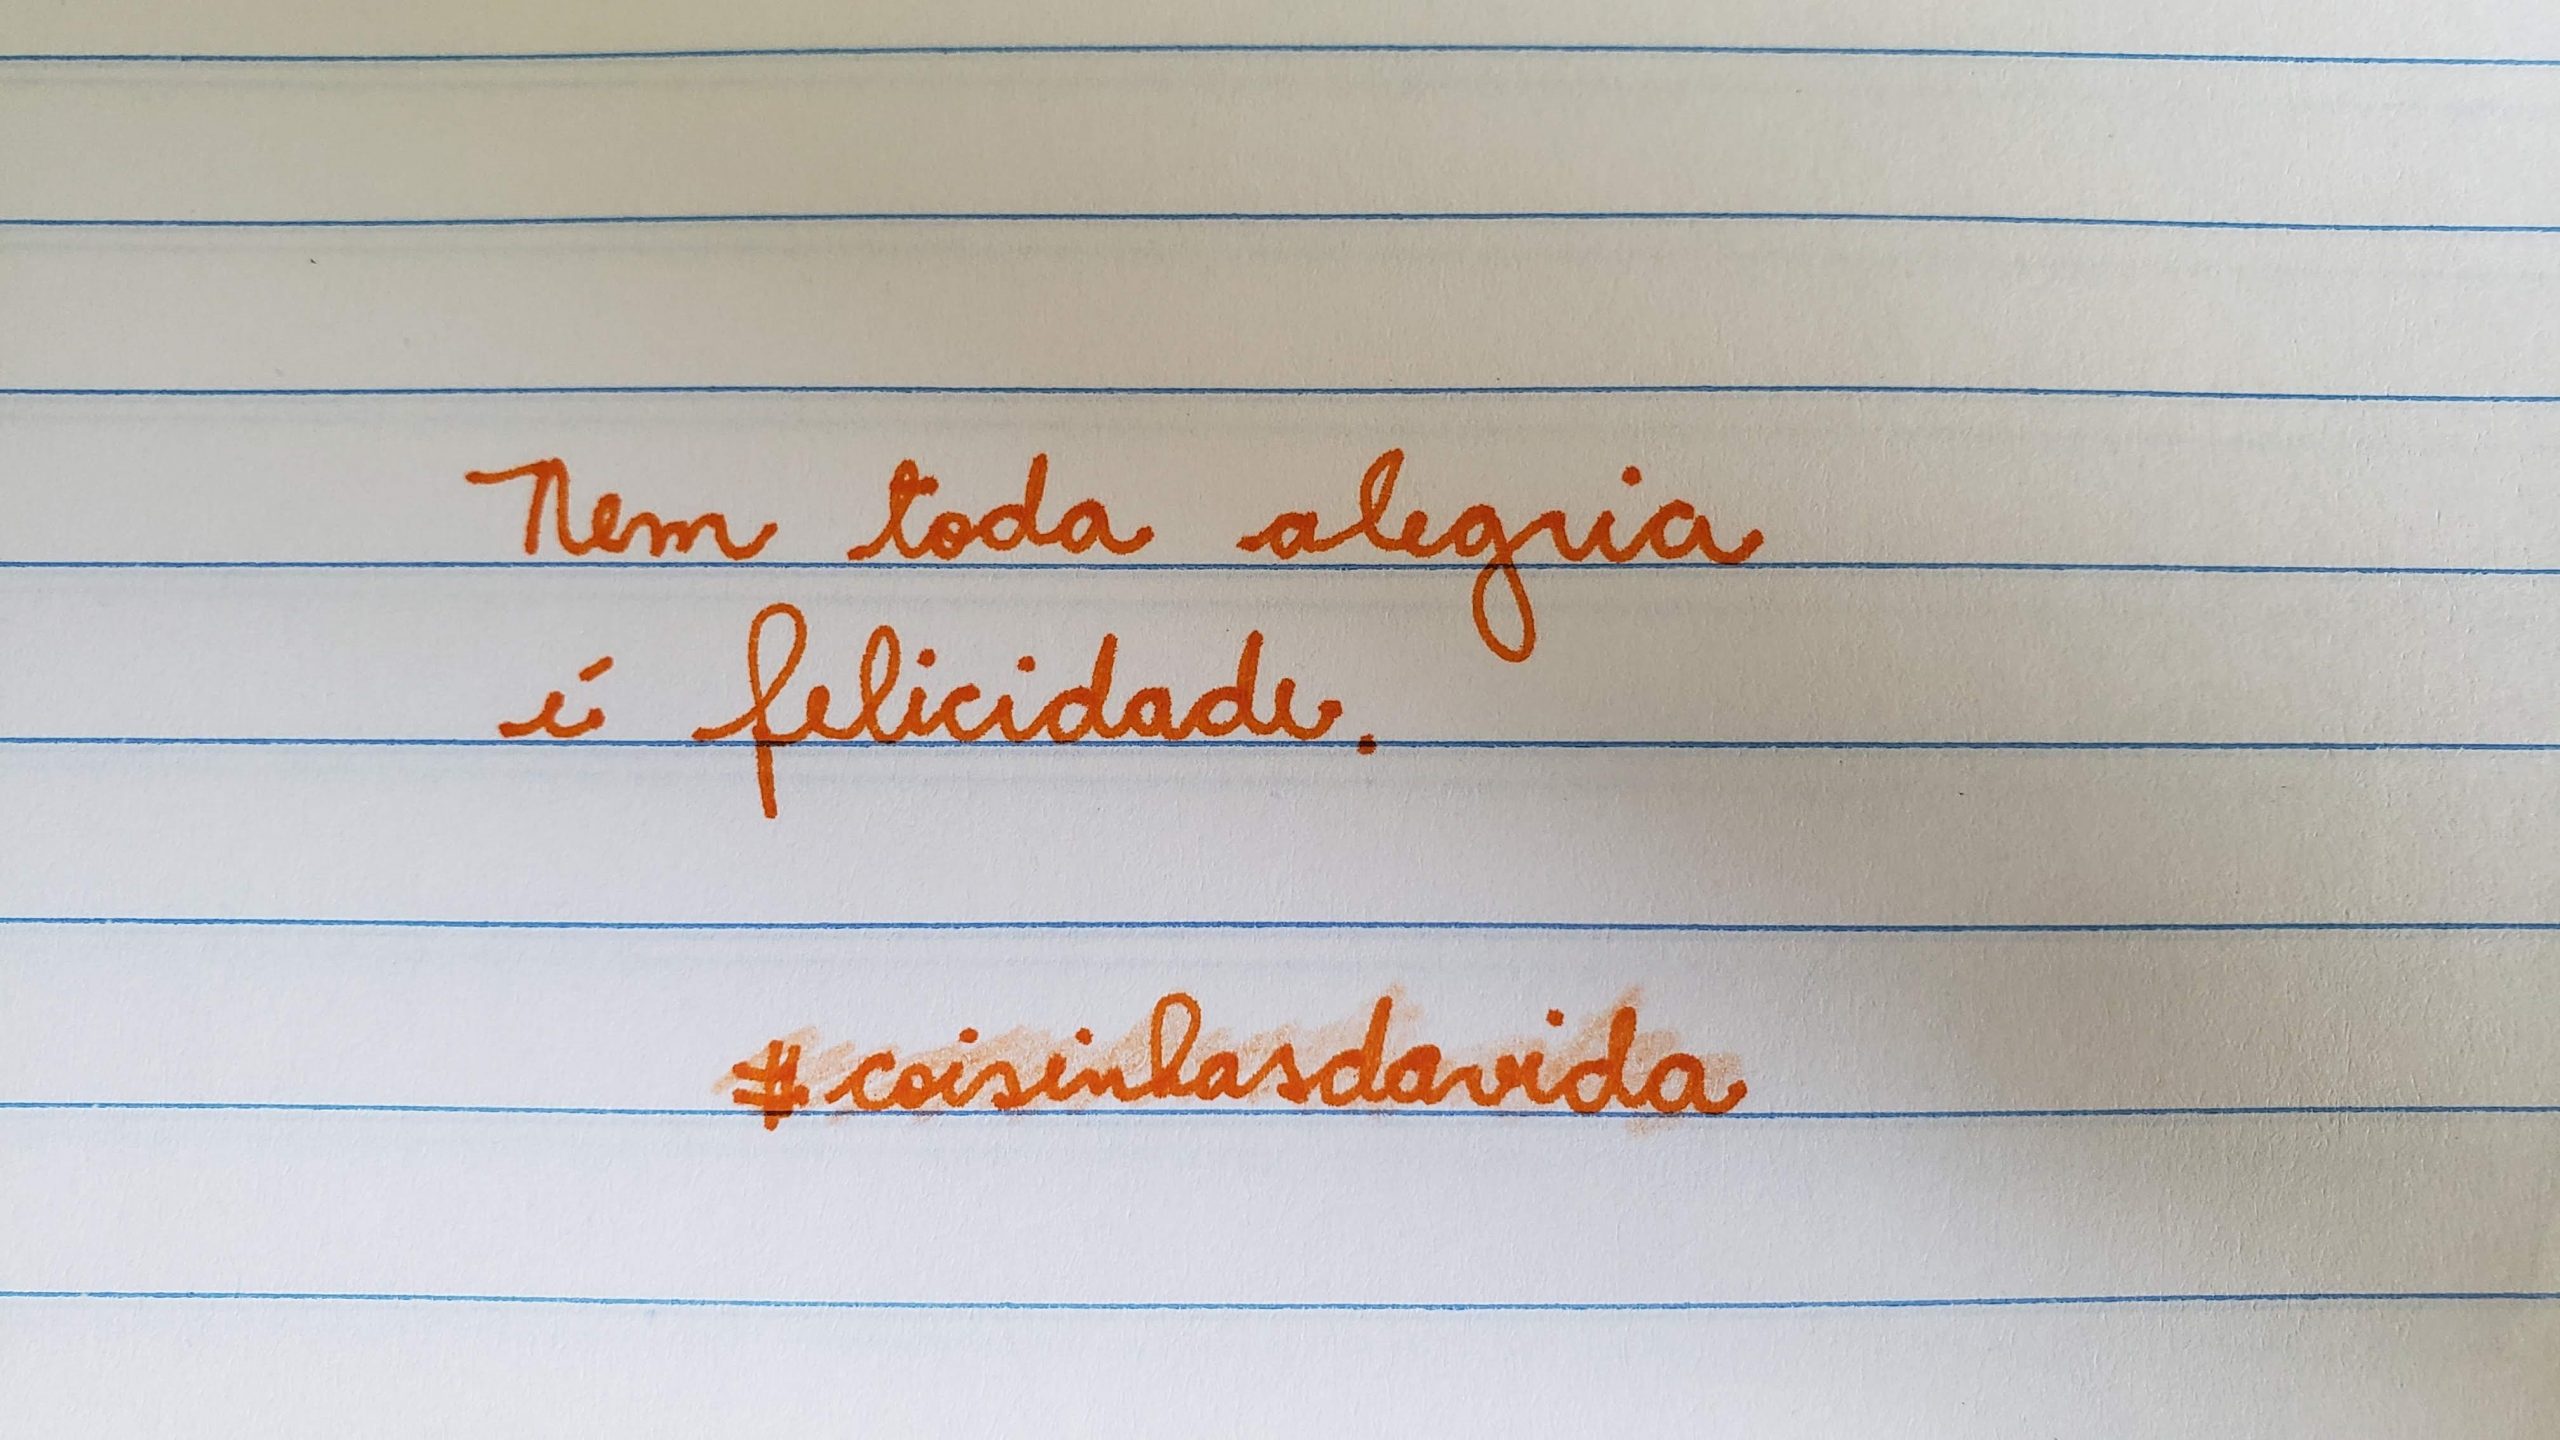 Nem toda alegria
é felicidade.
#coisinhasdavida